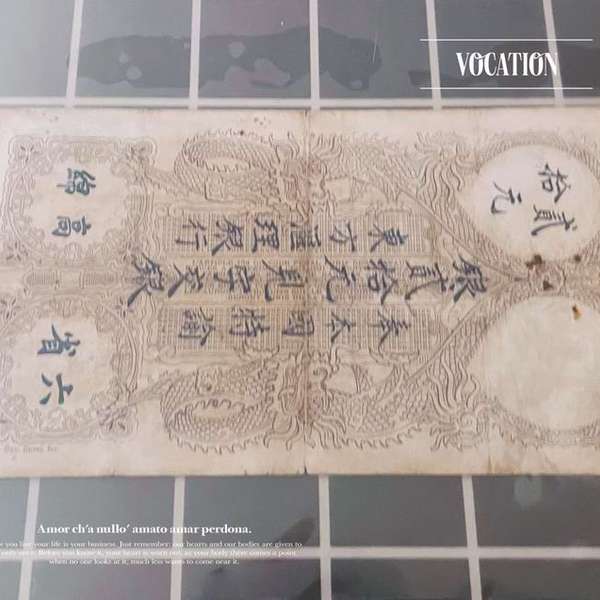 VOCATION
貳拾元
東方滙理銀行
銀貳拾元見字交銀
奉本國特諭
高綿
六省
Amor ch'a nullo' amato amar perdona.
you live your life is your business. Just remember: our hearts and our bodies are given to
only once. Before you know it, your heart is worn out, as your body there comes a point
when no one looks at it, much less wants to come near it.